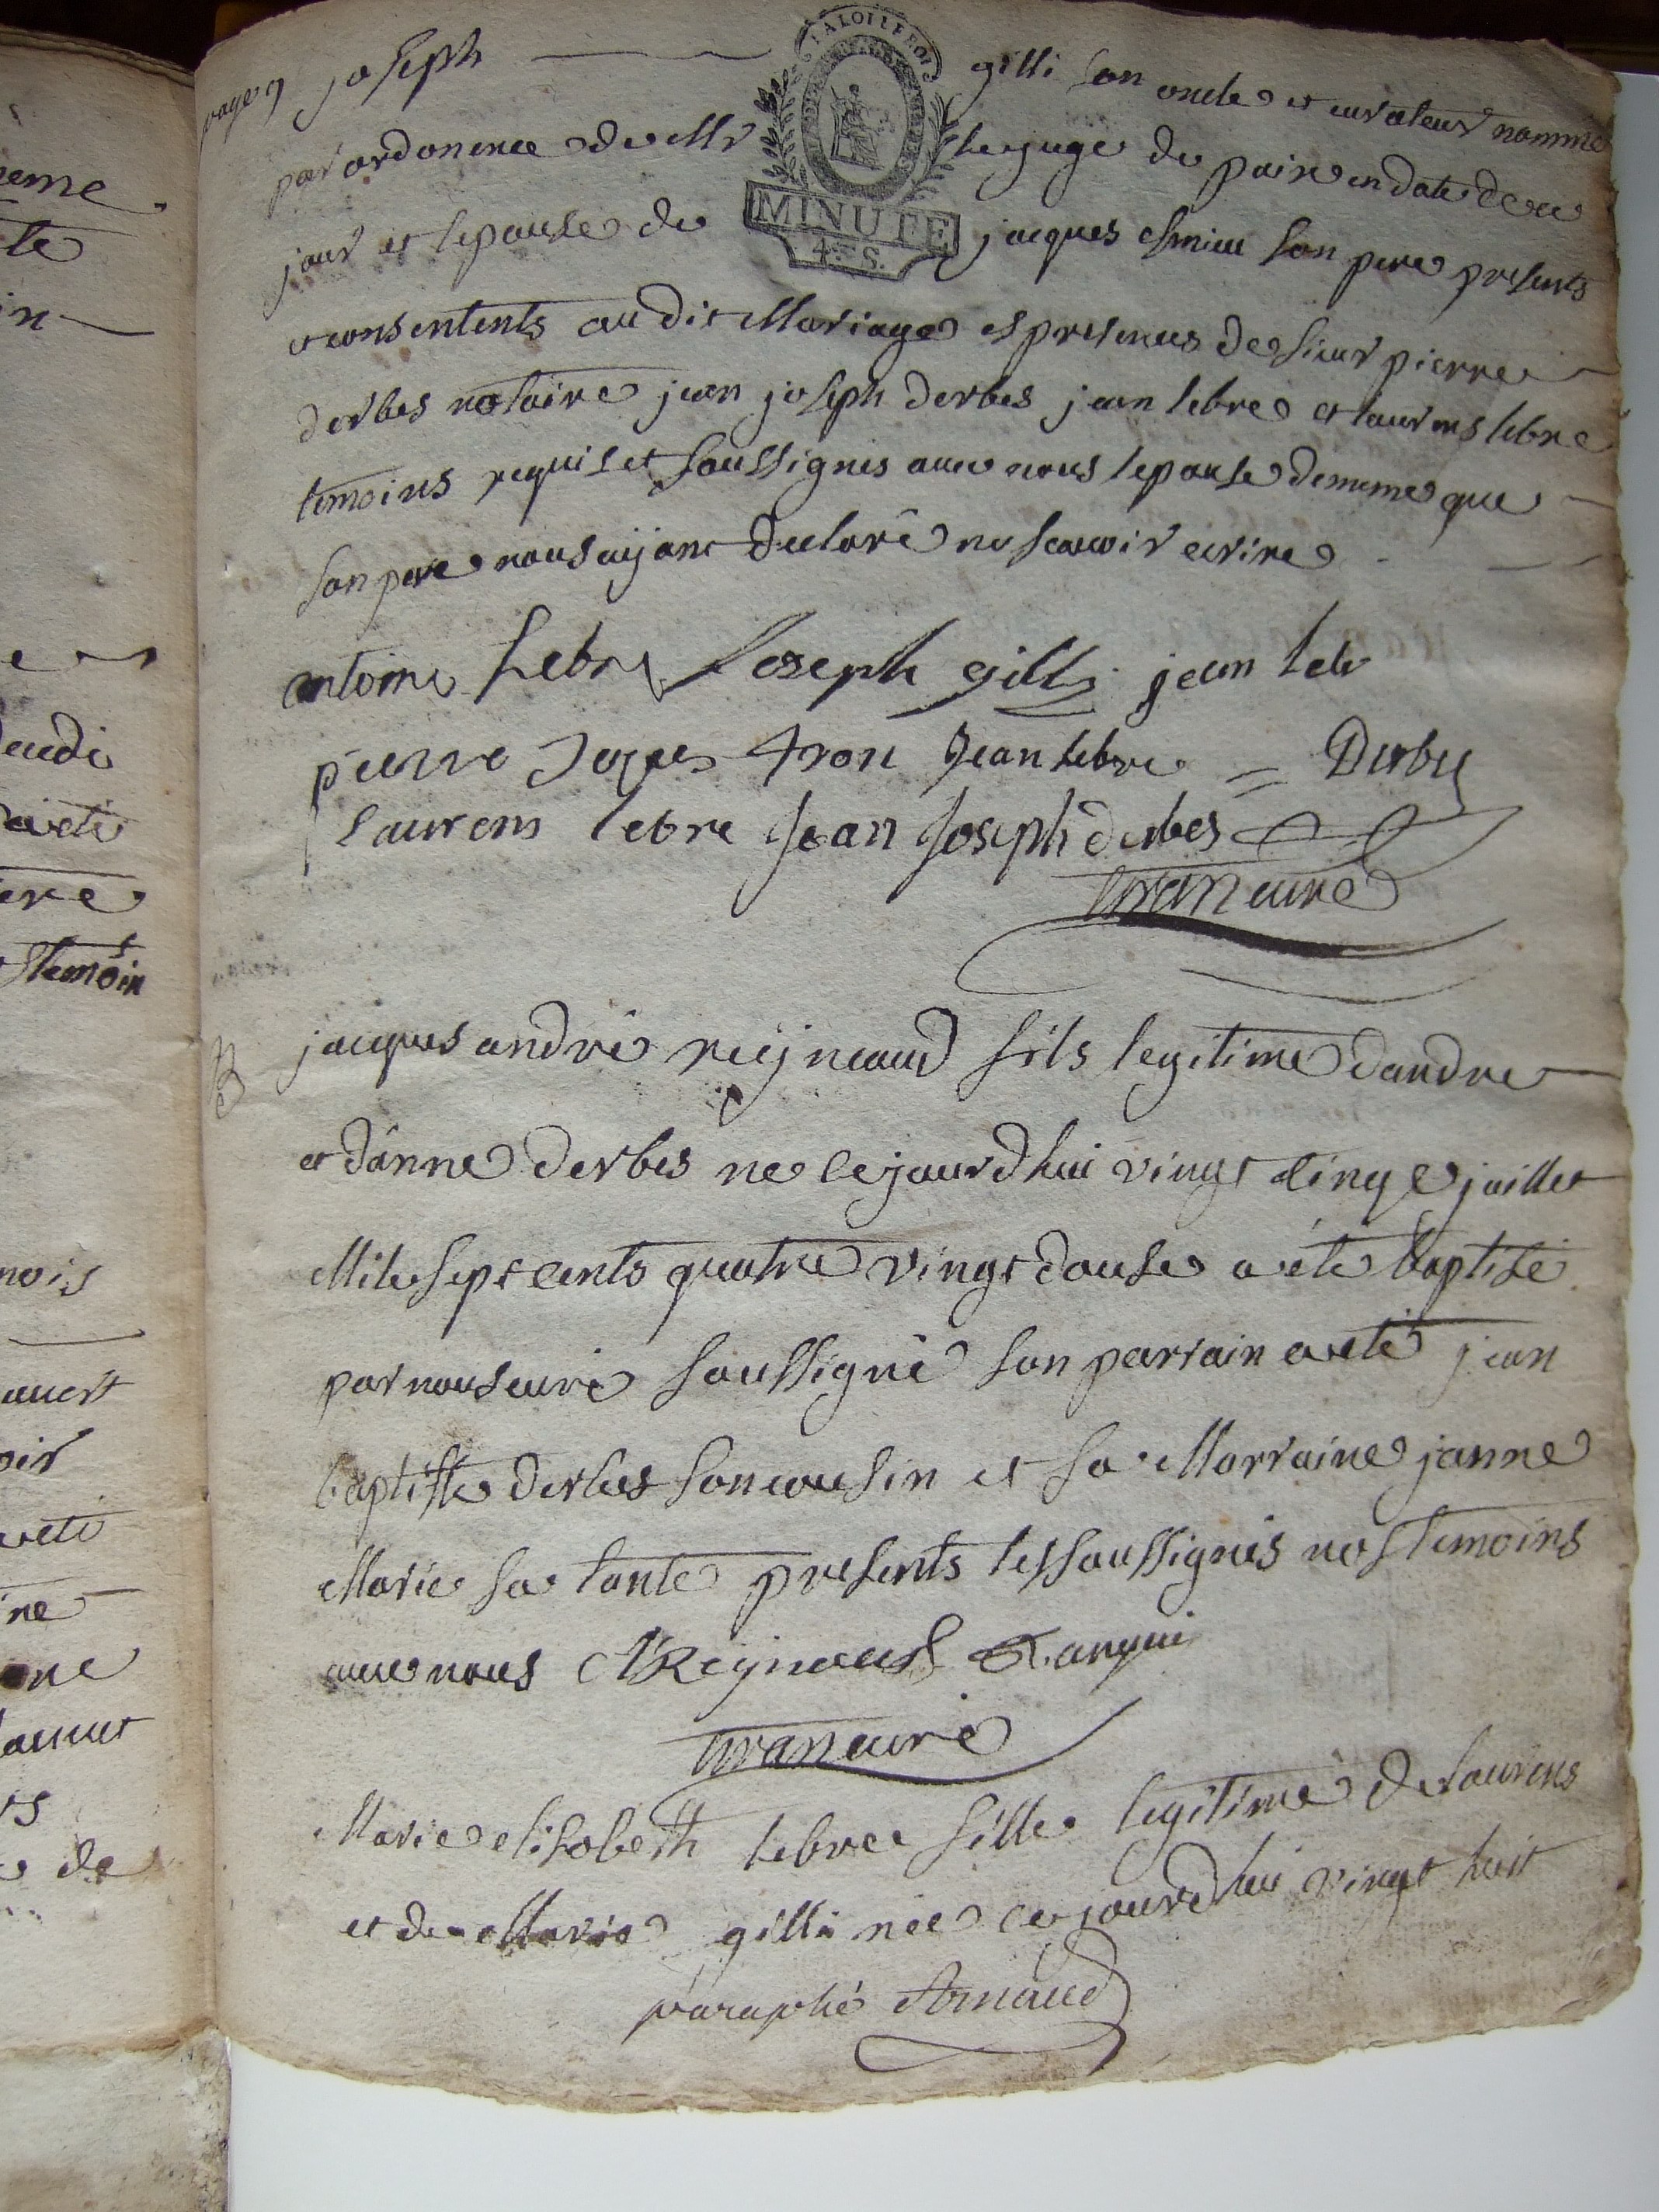 page 9 joseph gilli son oncle et curateur nommé
LA LOI LE ROI
par ordonence de Mr le juge de paix en date de ce
MINUTE
4. S.
jour et lepouse de jacques esmieu son pere presents
et consentents au dit Mariage es presences de sieur pierre
derbes notaire jean joseph derbes jean lebre et laurens lebre
temoins requis et soussignes avec nous lepouse de meme que
son pere nous aijant declaré ne scavoir ecrire
antoine Lebre Joseph gilli jean leb
pierre Jaques Jean lebre = Derbes
laurens lebre Jean Joseph derbes
curé
B
jacques andré reijneaud fils legitime dandre
et danne derbes ne cejourdhui vingt cinq juillet
Mile sept cents quatre vingt douse a été baptisé
par nous curé soussigné son parrain a eté jean
baptiste derbes son cousin et sa Marraine janne
Marie sa tante presents les soussignés nos temoins
avec nous A Reijnaud
curé
Marie elisabeth lebre fille legitime de laurens
et de Marie gilli née cejourdhui vingt huit
paraphé Arnaud
eme
te
in
e
audi
a eté
ere
temoin
mois
avert
oir
eté
ine
ne
ts
de